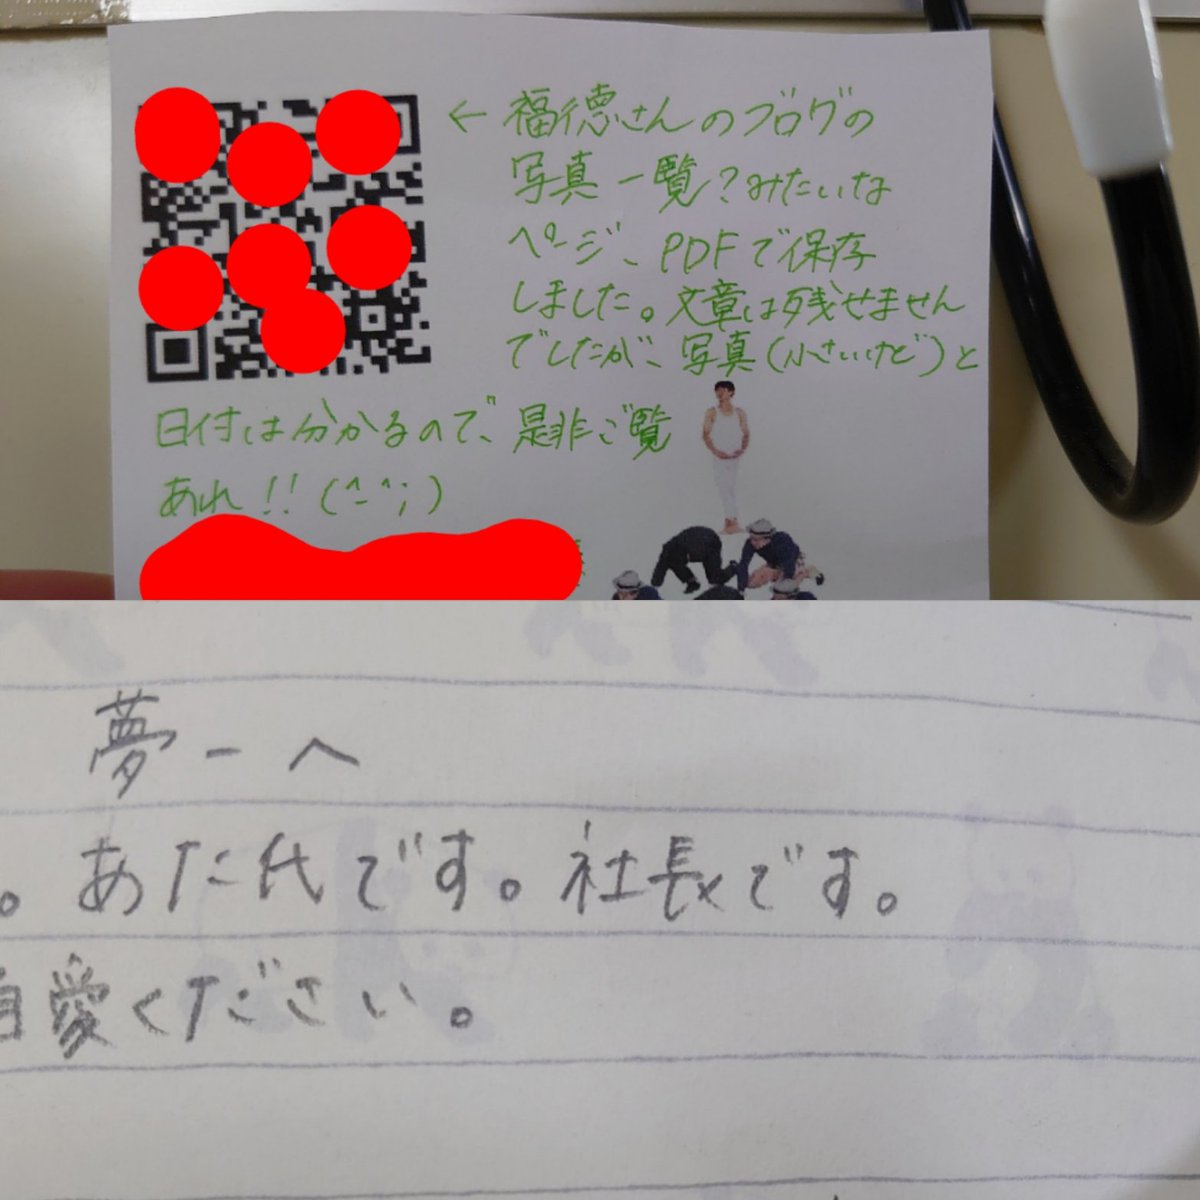 ← 福徳さんのブログの
写真一覧?みたいな
ページ、PDFで保存
しました。文章は残せません
でしたが、写真(小さいけど)と
日付は分かるので、是非ご覧
あれ!!(^-^;)
夢一へ
。あた代です。社長です。
自愛ください。